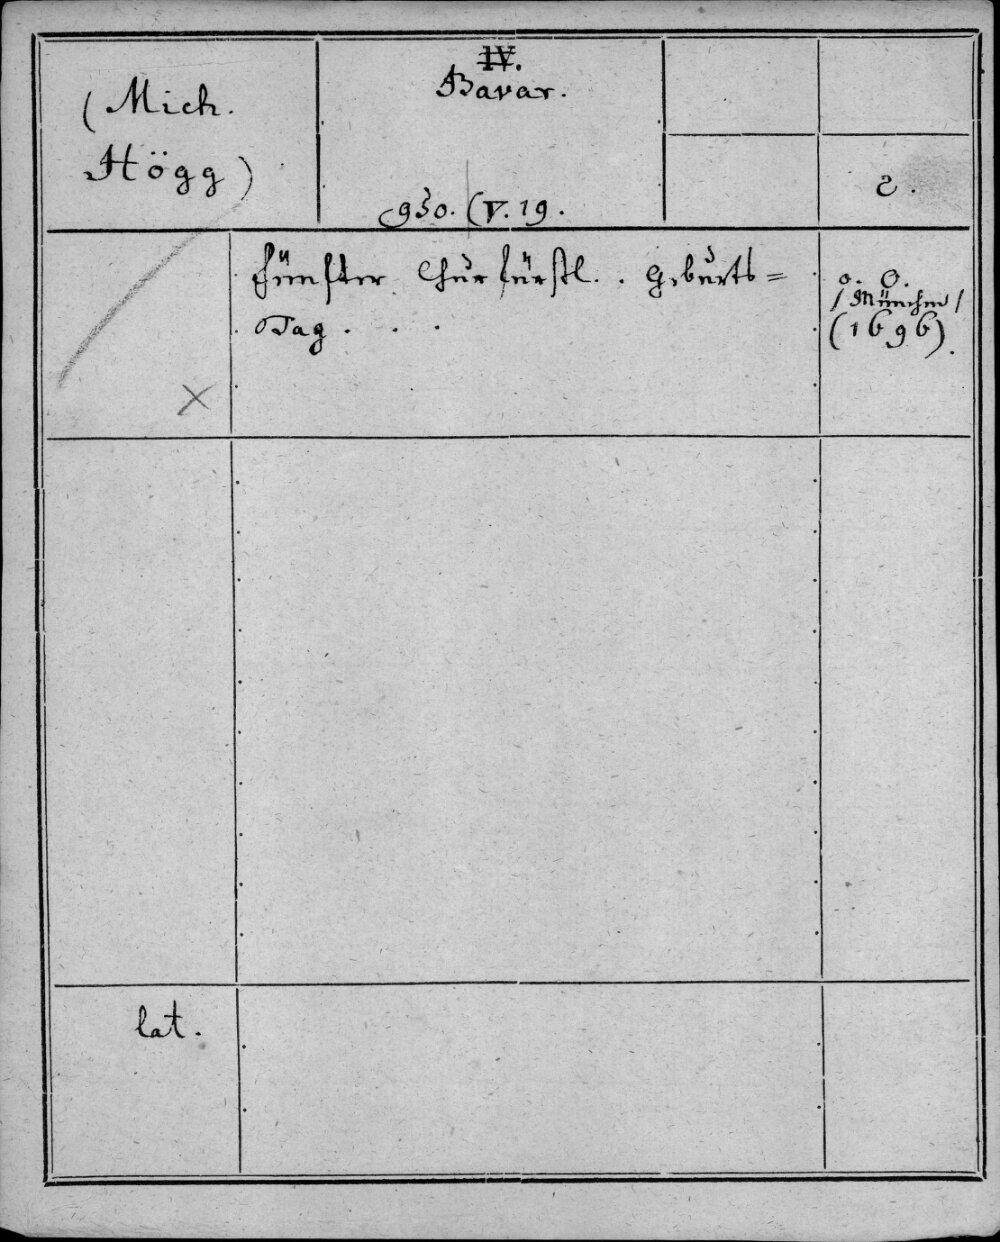 (Mich.
Högg)
IV.
Bavar.
950. (V. 19.
2.
Fünfter Churfürstl. . Geburts=
Tag . . .
o. O.
/München/
(1696).
lat.